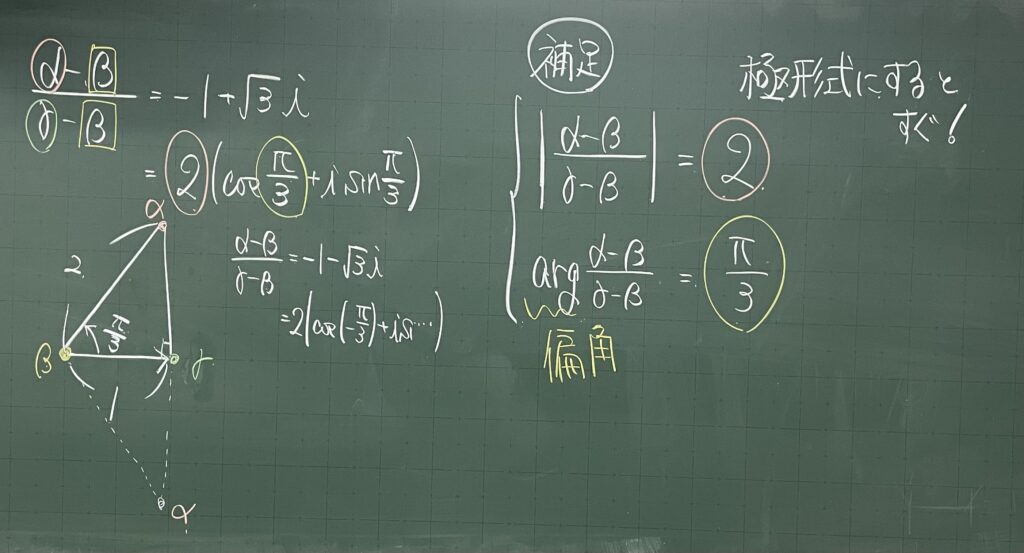 (α-β)/(γ-β) = -1+√3 i
= 2(cos π/3 + i sin π/3)
α
2
π/3
β
γ
1
α
(α-β)/(γ-β) = -1-√3 i
= 2(cos(-π/3)+i si…)
補足
|(α-β)/(γ-β)| = 2
arg (α-β)/(γ-β) = π/3
偏角
極形式にすると
すぐ!